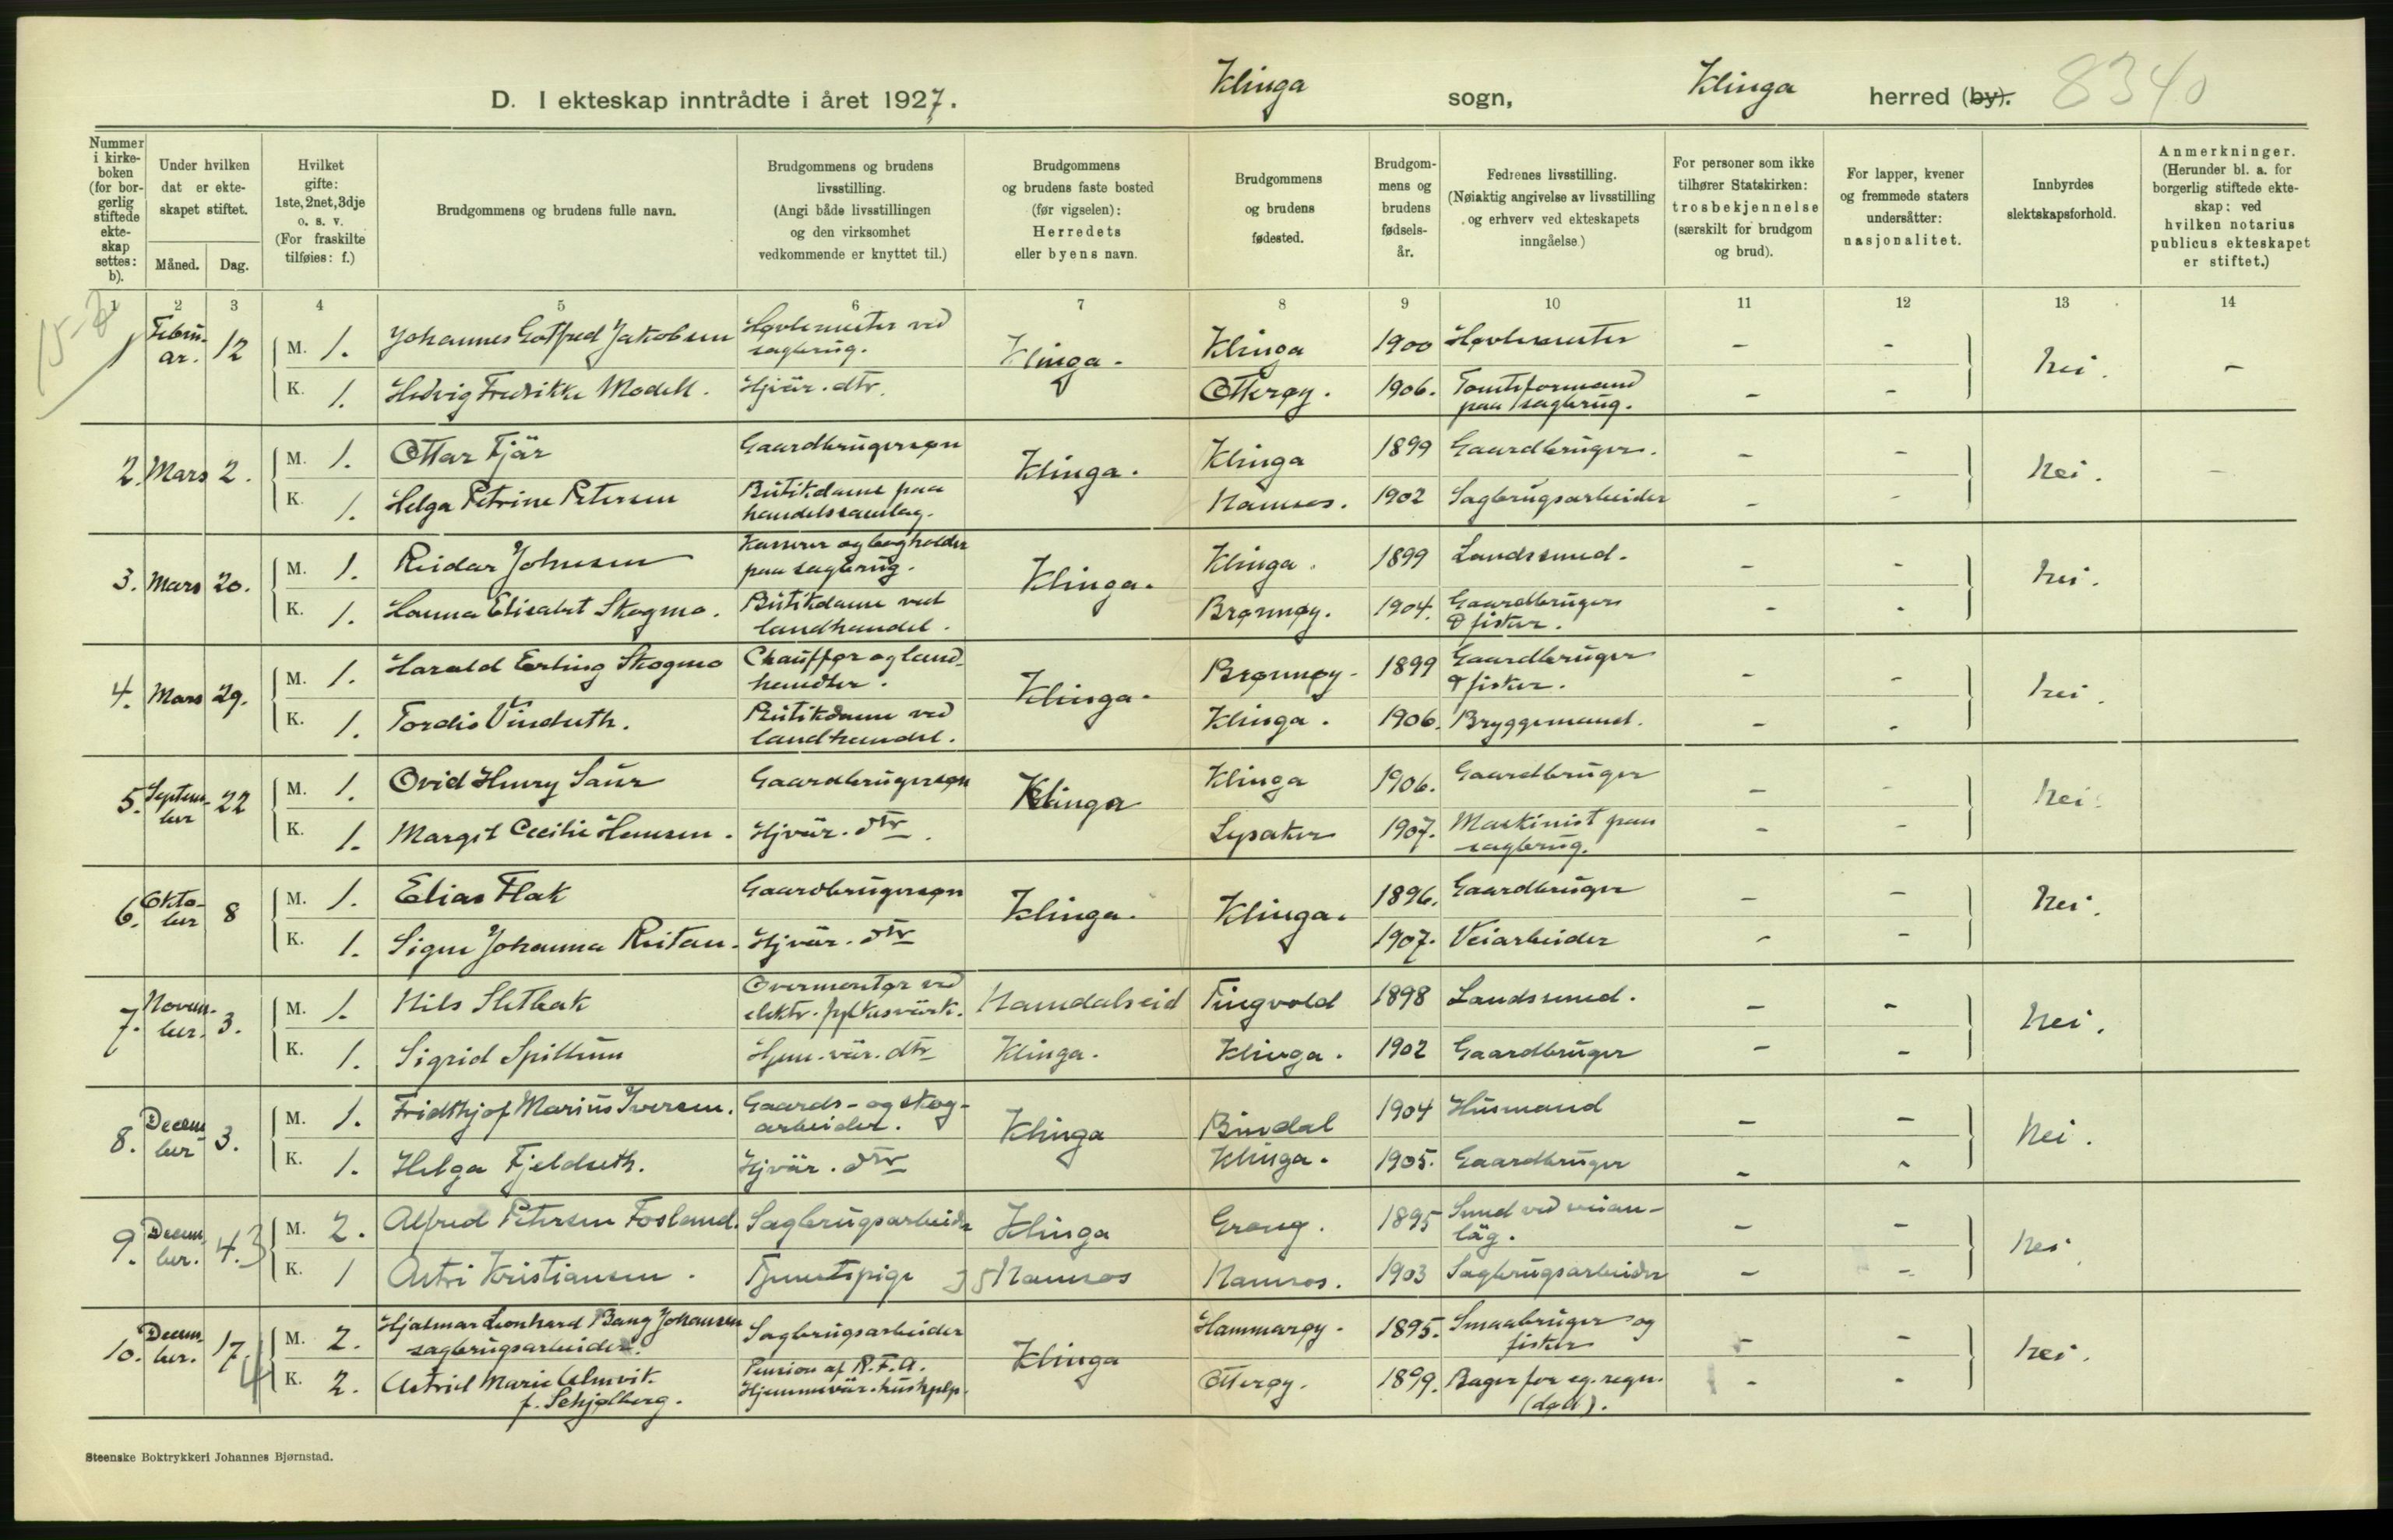 D. I ekteskap inntrådte i året 1927.
Klinga sogn, Klinga herred (by).
8340
Nummer i kirkeboken (for borgerlig stiftede ekteskap settes: b).
Under hvilken dat er ekteskapet stiftet.
Måned. Dag.
Hvilket gifte: 1ste, 2net, 3dje o. s. v. (For fraskilte tilføies: f.)
Brudgommens og brudens fulle navn.
Brudgommens og brudens livsstilling. (Angi både livsstillingen og den virksomhet vedkommende er knyttet til.)
Brudgommens og brudens faste bosted (før vigselen): Herredets eller byens navn.
Brudgommens og brudens fødested.
Brudgommens og brudens fødselsår.
Fedrenes livsstilling. (Nøiaktig angivelse av livsstilling og erhverv ved ekteskapets inngåelse.)
For personer som ikke tilhører Statskirken: trosbekjennelse (særskilt for brudgom og brud).
For lapper, kvener og fremmede staters undersåtter: nasjonalitet.
Innbyrdes slektskapsforhold.
Anmerkninger. (Herunder bl. a. for borgerlig stiftede ekteskap: ved hvilken notarius publicus ekteskapet er stiftet.)
1 2 3 4 5 6 7 8 9 10 11 12 13 14
1 Febru-ar. 12 M. 1. Johannes Gotfred Jakobsen Høvlemester ved sagbrug. Klinga. Klinga 1900 Høvlemester - - nei. -
K. 1. Hedvig Fredrikke Modell. Hjvär. dtr. Otterøy. 1906. Tomteformand paa sagbrug. - -
2. Mars 2. M. 1. Ottar Fjär Gaardbrugersøn Klinga. Klinga 1899 Gaardbruger. - - nei. -
K. 1. Helga Petrine Petersen Butikdame paa handelssamlag. Namsos. 1902 Sagbrugsarbeider - -
3. Mars 20. M. 1. Reidar Johnsen Kasserer og bogholder paa sagbrug. Klinga. Klinga. 1899 Landssmed. - - nei.
K. 1. Hanna Elisabet Skogmo. Butikdame ved landhandel. Brønnøy. 1904. Gaardbruger & fisker. - -
4. Mars 29. M. 1. Harald Erling Skogmo Chauffør og landhandler. Klinga. Brønnøy. 1899 Gaardbruger & fisker. - - nei.
K. 1. Tordis Vinduth. Butikdame ved landhandel. Klinga. 1906. Bryggemand. - -
5. Septem-ber 22 M. 1. Ovid Henry Saur Gaardbrugersøn Klinga Klinga 1906. Gaardbruger - - nei.
K. 1. Margit Cecilie Hansen. Hjvär. dtr. Lysaker 1907. Maskinist paa sagbrug. - -
6. Okto-ber 8 M. 1. Elias Flak Gaardbrugersøn Klinga. Klinga. 1896. Gaardbruger - - nei.
K. 1. Signe Johanna Reitan. Hjvär. dtr 1907. Veiarbeider - -
7. Novem-ber. 3. M. 1. Nils Sletbak Overmontør ved elektr. fylkesvärk. Namdalseid Tingvold 1898 Landssmed. - - nei.
K. 1. Sigrid Spillum Hjem. vär. dtr Klinga. Klinga. 1902 Gaardbruger - -
8. Decem-ber 3. M. 1. Fridthjof Marius Iversen. Gaards- og skog-arbeider. Klinga Bindal 1904 Husmand - - nei.
K. 1. Helga Fjeldseth. Hjvär. dtr Klinga. 1905. Gaardbruger - -
9. Decem-ber. 4. 3 M. 2. Alfred Petersen Fosland. Sagbrugsarbeider Klinga Grong. 1895 Smed ved veian-läg. - - nei.
K. 1 Astri Kristiansen. Tjenestepige 35 Namsos Namsos. 1903 Sagbrugsarbeider - -
10. Decem-ber. 17. 4 M. 2. Hjalmar Leonhard Bang Johansen sagbrugsarbeider. Sagbrugsarbeider Klinga Hammarøy. 1895. Smaabruger og fisker - - nei.
K. 2. Astrid Marie Almvik f. Schjølberg. Pension af R.F.A. Hjemmevär. hushjelp. Otterøy. 1899. Bager for eg. regn. (død). - -
Steenske Boktrykkeri Johannes Bjørnstad.